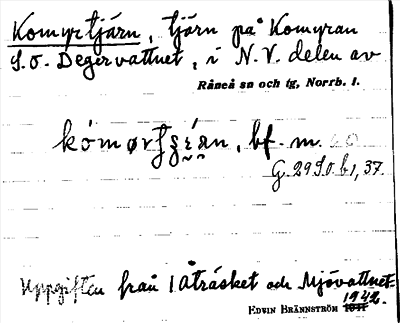 Komyrtjärn, tjärn på Komyran
S.O. Degervattnet, i N.V. delen av
Råneå sn och tg, Norrb. l.
bf. m.
G. 29 S.O. b1, 37.
Uppgiften från Jåträsket och Mjövattnet
1942.
EDVIN BRÄNNSTRÖM